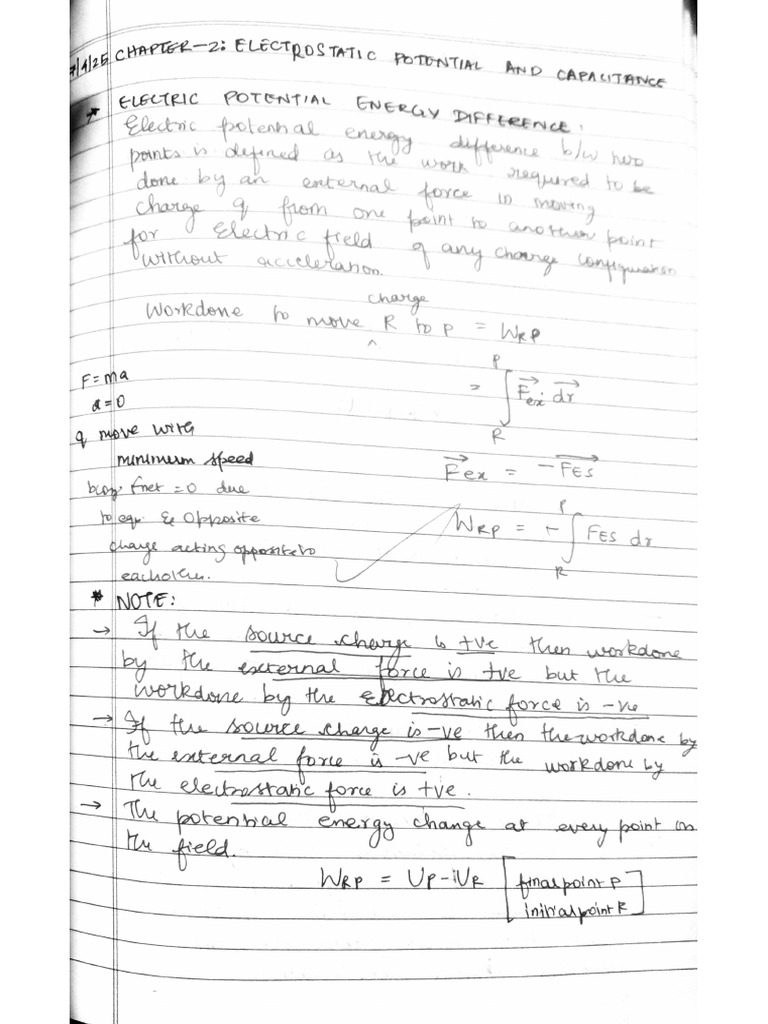 7/4/25 CHAPTER-2: ELECTROSTATIC POTENTIAL AND CAPACITANCE
* ELECTRIC POTENTIAL ENERGY DIFFERENCE:
Electric potential energy difference b/w two
points is defined as the work required to be
done by an external force in moving
charge q from one point to another point
for Electric field of any charge configuration
without acceleration.
charge
Workdone to move ^ R to P = WRP
F = ma
a = 0
q move with
minimum speed
bcoz Fnet = 0 due
to equ & Opposite
charge acting opposite to
each other.
P
= ∫ Fex . dr
R
Fex = -FES
P
WRP = - ∫ FES dr
R
* NOTE:
→ If the source charge is +ve then workdone
by the external force is +ve but the
workdone by the Electrostatic force is -ve
→ If the source charge is -ve then the workdone by
the external force is -ve but the workdone by
the electrostatic force is +ve.
→ The potential energy change at every point in
the field.
WRP = UP - UR [final point P
initial point R]